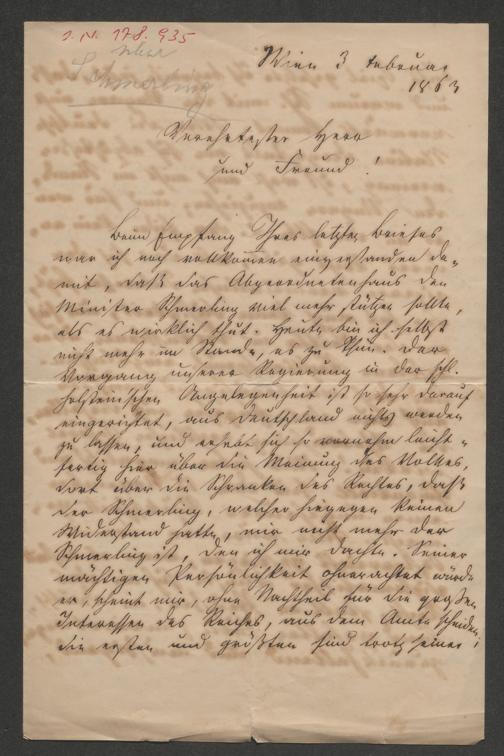 I. N. 178.935
über
Schmerling
Wien 3 Februar
1863
Verehrtester Herr
und Freund!
Beim Empfang Ihres letzten Briefes
war ich noch vollkommen einverstanden da-
mit, daß das Abgeordnetenhaus den
Minister Schmerling viel mehr stützen sollte,
als es wirklich thut. Heute bin ich selbst
nicht mehr im Stande, es zu thun. Der
Vorgang unserer Regierung in der schl.
holsteinischen Angelegenheit ist so sehr darauf
eingerichtet, aus Deutschland nichts werden
zu lassen, und setzt sich so vornehm leicht-
fertig hier über die Meinung des Volkes,
dort über die Schranken des Rechtes, daß
der Schmerling, welcher hiegegen keinen
Widerstand hatte, mir nicht mehr der
Schmerling ist, den ich mir dachte. Seiner
mächtigen Persönlichkeit ohnerachtet würde
er, scheint mir, ohne Nachtheil für die großen
Interessen des Reiches, aus dem Amte scheiden;
die ersten und größten sind trotz seiner